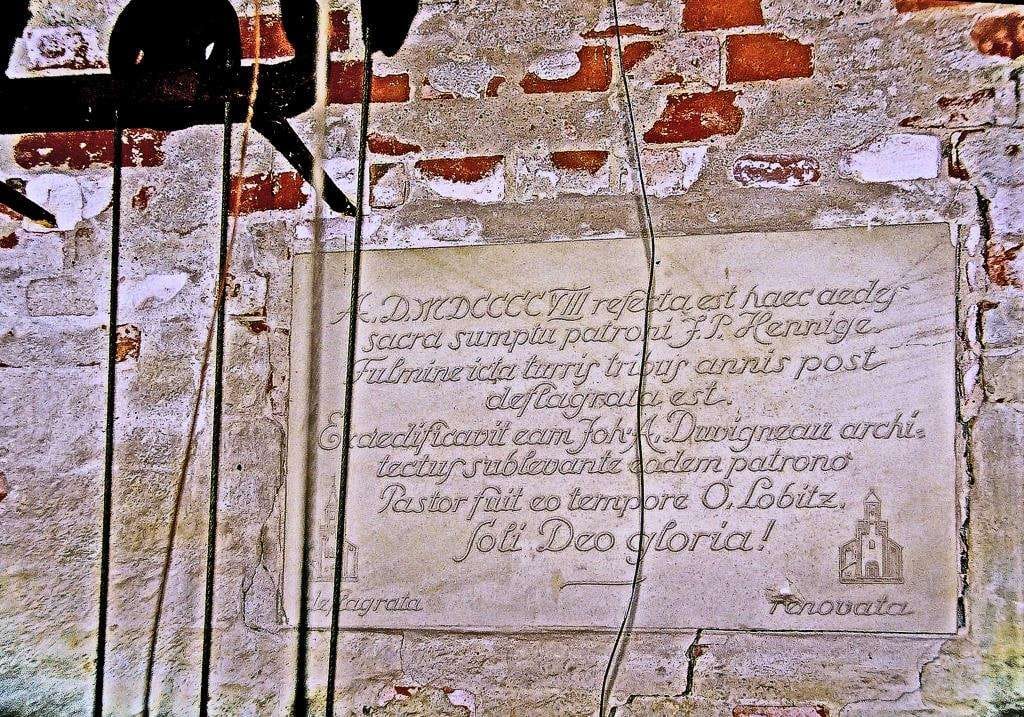 A. D. MDCCCCVIII refecta est haec aedes
sacra sumptu patroni F. P. Hennige.
Fulmine icta turris tribus annis post
deflagrata est.
Exaedificavit eam Joh. A. Duvigneau archi-
tectus sublevante eodem patrono
Pastor fuit eo tempore O. Lobitz.
Soli Deo gloria!
deflagrata
renovata